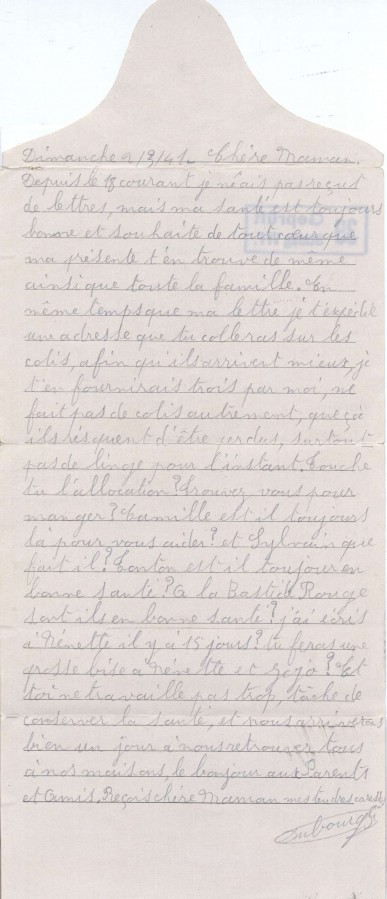 Dimanche 2/3/41. Chère Maman.
Depuis le 18 courant je n'ais pas reçus
de lettres, mais ma santé est toujours
bonne et souhaite de tout cœur que
ma présente t'en trouve de même
ainsi que toute la famille. En
même temps que ma lettre je t'expédie
une adresse que tu colleras sur les
colis, afin qu'ils arrivent mieux, je
t'en fournirais trois par moi, ne
fait pas de colis autrement, que çà
ils risquent d'être perdus, surtout
pas de linge pour l'instant. Touche
tu l'allocation? Trouvez vous pour
manger? Camille est il toujours
là pour vous aider? et Sylvain que
fait il? Tonton est il toujour en
bonne santé? A la Bastide Rouge
sont ils en bonne santé? j'ai écris
à Nénette il y à 15 jours? tu feras une
grosse bise à Nénette et Zozo? Et
toi ne travaille pas trop, tâche de
conserver la santé, et nous arriverons
bien un jour à nous retrouver tous
à nos maisons, le bonjour aux Parents
et Amis. Reçois chère Maman mes tendres caresses